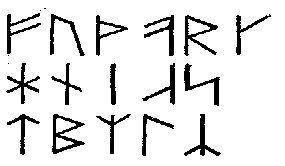 ᚠᚢᚦᚭᚱᚴ
ᚼᚾᛁᛆᛋ
ᛏᛒᛘᛚᛦ